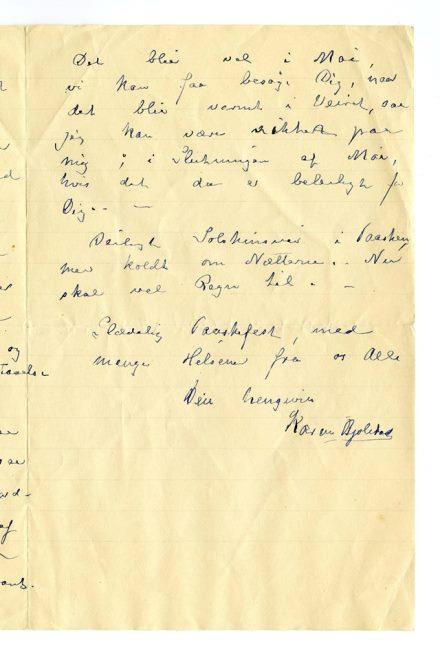 Det blir vel i Mai,
vi kan faa besøge Dig, naar
det blir varmt i Veiret, saa
jeg kan være sikker paa
mig; i Slutningen af Mai,
hvis det da er beleiligt for
Dig. . —
Deiligt Solskinsveir i Paasken,
men koldt om Nætterne. . Nu
skal vel Regn til. —
Glædelig Paaskefest, med
mange Hilsener fra os Alle
Din hengivne
Karen Bjølstad
og
af